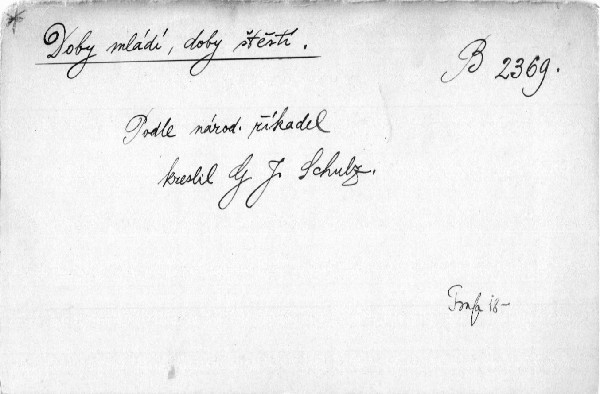 Doby mládí, doby štěstí.
B 2369.
Podle národ. říkadel
kreslil G J. Schulz.
18-